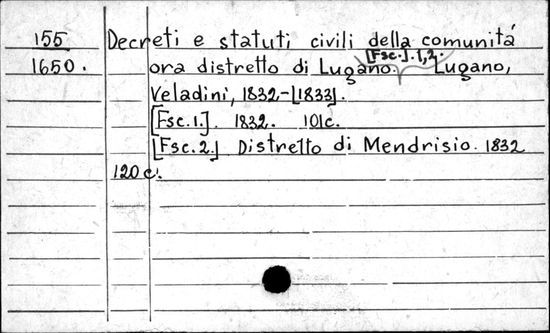 155 Decreti e statuti civili della comunitá
[Fsc.]. 1,2.
1650. ora distretto di Lugano. Lugano,
Veladini, 1832-[1833].
[Fsc.1.]. 1832. 101c.
[Fsc.2.] Distretto di Mendrisio. 1832
120 c.